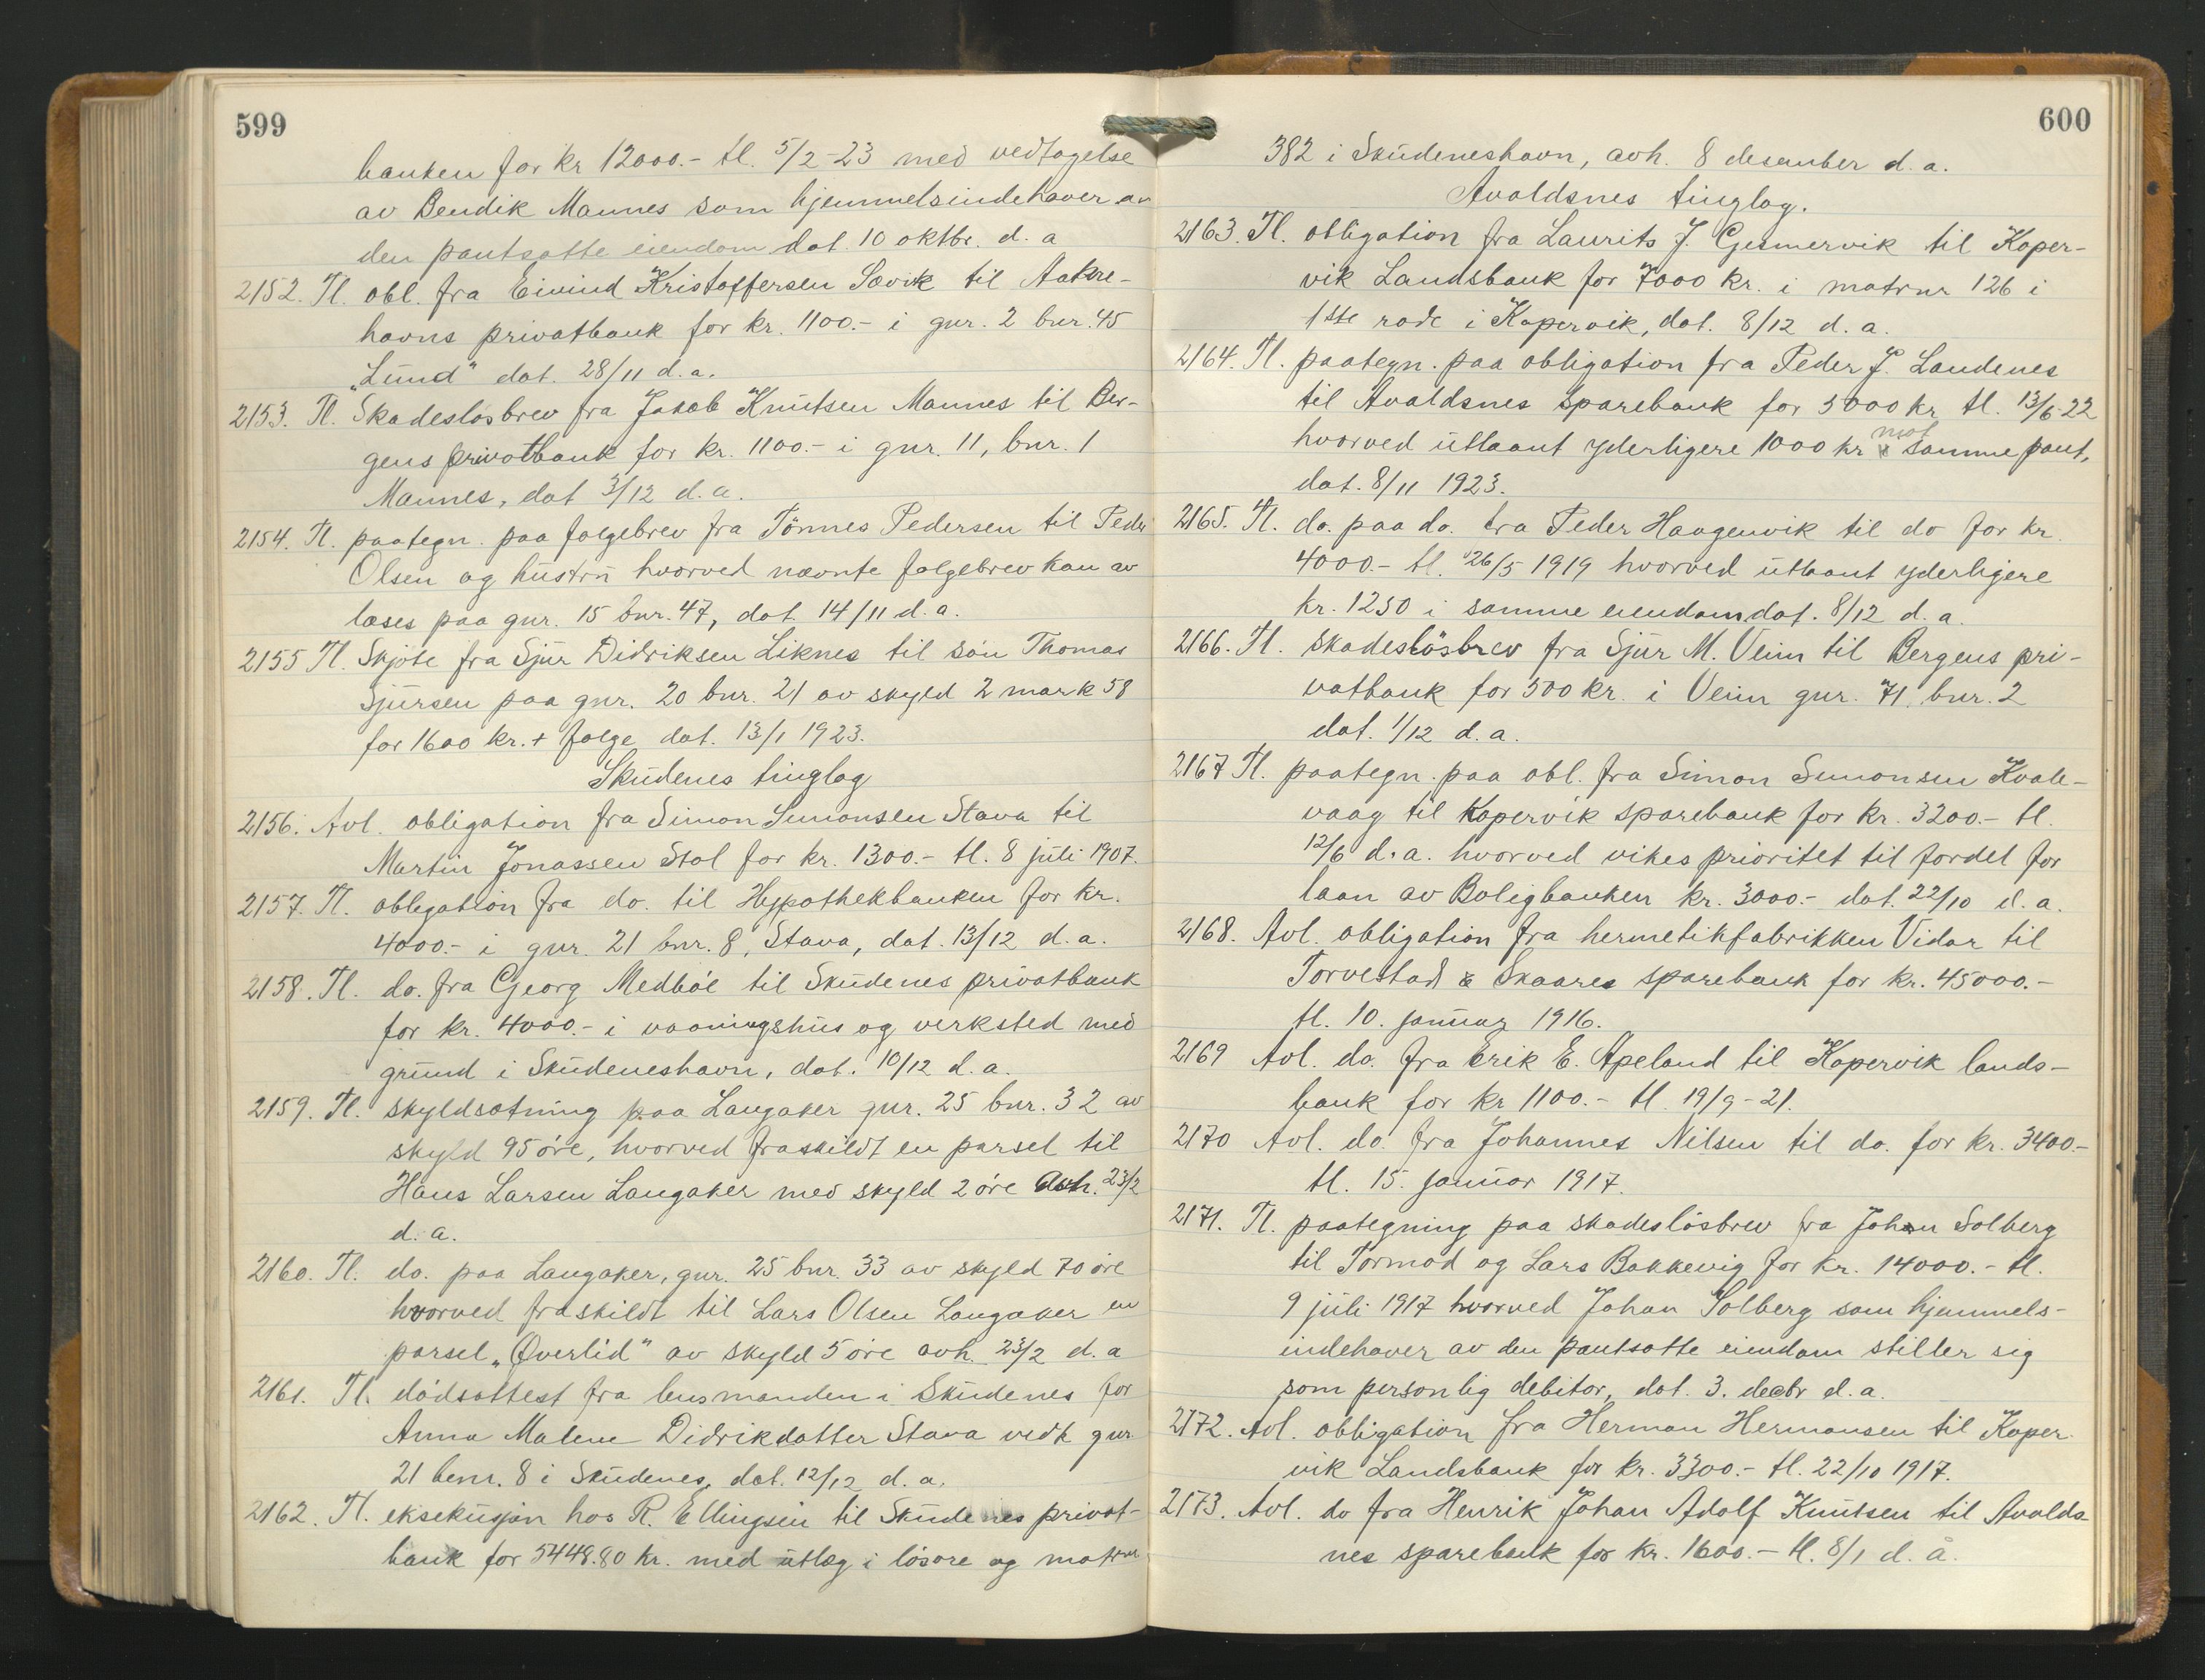 599
banken for kr 12000.- tl. 5/2-23 med vedtagelse
av Bendik Mannes som hjemmelsindehaver av
den pantsatte eiendom dat. 10 oktbr. d. a
2152. Tl. obl. fra Eivind Kristoffersen Sævik til Aakre-
havns privatbank for kr. 1100.- i gnr. 2 bnr. 45
„Lund" dat. 28/11 d. a.
2153. Tl. Skadesløsbrev fra Jakob Knutsen Mannes til Ber-
gens privatbank for kr. 1100.- i gnr. 11, bnr. 1
Mannes, dat 3/12 d. a.
2154. Tl. paategn. paa følgebrev fra Tönnes Pedersen til Peder
Olsen og hustru hvorved nævnte følgebrev kan av
læses paa gnr. 15 bnr. 47, dat. 14/11 d. a.
2155 Tl. Skjøte fra Sjur Didriksen Liknes til søn Thomas
Sjursen paa gnr. 20 bnr. 21 av skyld 2 mark 58
for 1600 kr. + følge dat. 13/1 1923.
Skudenes tinglag
2156. Avl. obligation fra Simon Simonsen Stava til
Martin Jonassen Stol for kr. 1300.- tl. 8 juli 1907.
2157. Tl. obligation fra do. til Hypothekbanken for kr.
4000.- i gnr. 21 bnr. 8, Stava, dat. 13/12 d. a.
2158. Tl. do. fra Georg Medböe til Skudenes privatbank
for kr. 4000.- i vaaningshus og verksted med
grund i Skudeneshavn, dat. 10/12 d. a.
2159. Tl. skyldsætning paa Langaker gnr. 25 bnr. 32 av
skyld 95 øre, hvorved fraskildt en parsel til
Hans Larsen Langaker med skyld 2 øre avh. 23/2
d. a.
2160. Tl. do. paa Langaker, gnr. 25 bnr. 33 av skyld 70 øre
hvorved fraskildt til Lars Olsen Langaker en
parsel „Øverlid" av skyld 5 øre avh. 23/2 d. a
2161. Tl. dödsattest fra lensmanden i Skudenes for
Anna Malene Didrikdatter Stava vedk gnr
21 bnr. 8 i Skudenes, dat. 12/12 d. a.
2162. Tl. eksekusjon hos R. Ellingsen til Skudenes privat-
bank for 5448.80 kr. med utlæg i lösöre og matrnr
600
382 i Skudeneshavn, avh. 8 desember d. a.
Avaldsnes tinglag.
2163. Tl. obligation fra Laurits J. Gismervik til Koper-
vik Landsbank for 7000 kr. i matrnr 126 i
1ste rode i Kopervik, dat. 8/12 d. a.
2164. Tl. paategn. paa obligation fra Peder J. Landenes
til Avaldsnes sparebank for 3000 kr tl. 13/6-22
hvorved utlaant yderligere 1000 kr mot samme pant,
dat. 8/11 1923.
2165. Tl. do. paa do. fra Peder Haagenvik til do for kr.
4000.- tl. 26/5 1919 hvorved utlaant yderligere
kr. 1250 i samme eiendom dat. 8/12 d. a.
2166. Tl. skadeslösbrev fra Sjur M. Veim til Bergens pri-
vatbank for 500 kr. i Veim gnr. 71. bnr. 2
dat. 1/12 d. a.
2167 Tl. paategn. paa obl. fra Simon Simonsen Kvale-
vaag til Kopervik sparebank for kr. 3200.- tl.
12/6 d. a. hvorved vikes prioritet til fordel for
laan av Boligbanken kr. 3000.- dat. 22/10 d. a.
2168. Avl. obligation fra hermetikfabrikken Vidar til
Torvestad & Skaares sparebank for kr. 45000.-
tl. 10. januar 1916.
2169 Avl. do. fra Erik E. Apeland til Kopervik lands-
bank for kr 1100.- tl. 19/9-21.
2170 Avl. do. fra Johannes Nilsen til do. for kr. 3400.-
tl. 15. januar 1917.
2171. Tl. paategning paa skadeslösbrev fra Johan Solberg
til Tormod og Lars Bakkevig for kr. 14000.- tl.
9 juli 1917 hvorved Johan Solberg som hjemmels-
indehaver av den pantsatte eiendom stiller sig
som personlig debitor, dat. 3. decbr d. a.
2172. Avl. obligation fra Herman Hermansen til Koper
vik Landsbank for kr. 3300.- tl. 22/10 1917.
2173. Avl. do fra Henrik Johan Adolf Knutsen til Avalds-
nes sparebank for kr. 1600.- tl. 8/1 d. å.